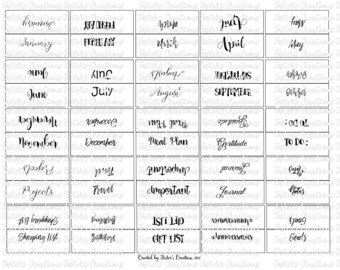 January FEBRUARY March April May
January FEBRUARY March April May
June July August SEPTEMBER October
June JULY August SEPTEMBER October
November December Meal Plan Gratitude TO DO:
November December Meal Plan Gratitude TO DO:
Projects Travel Important Journal Notes
Projects Travel Important Journal Notes
Shopping List Birthdays GIFT LIST Anniversaries Goals
Shopping List Birthdays GIFT LIST Anniversaries Goals